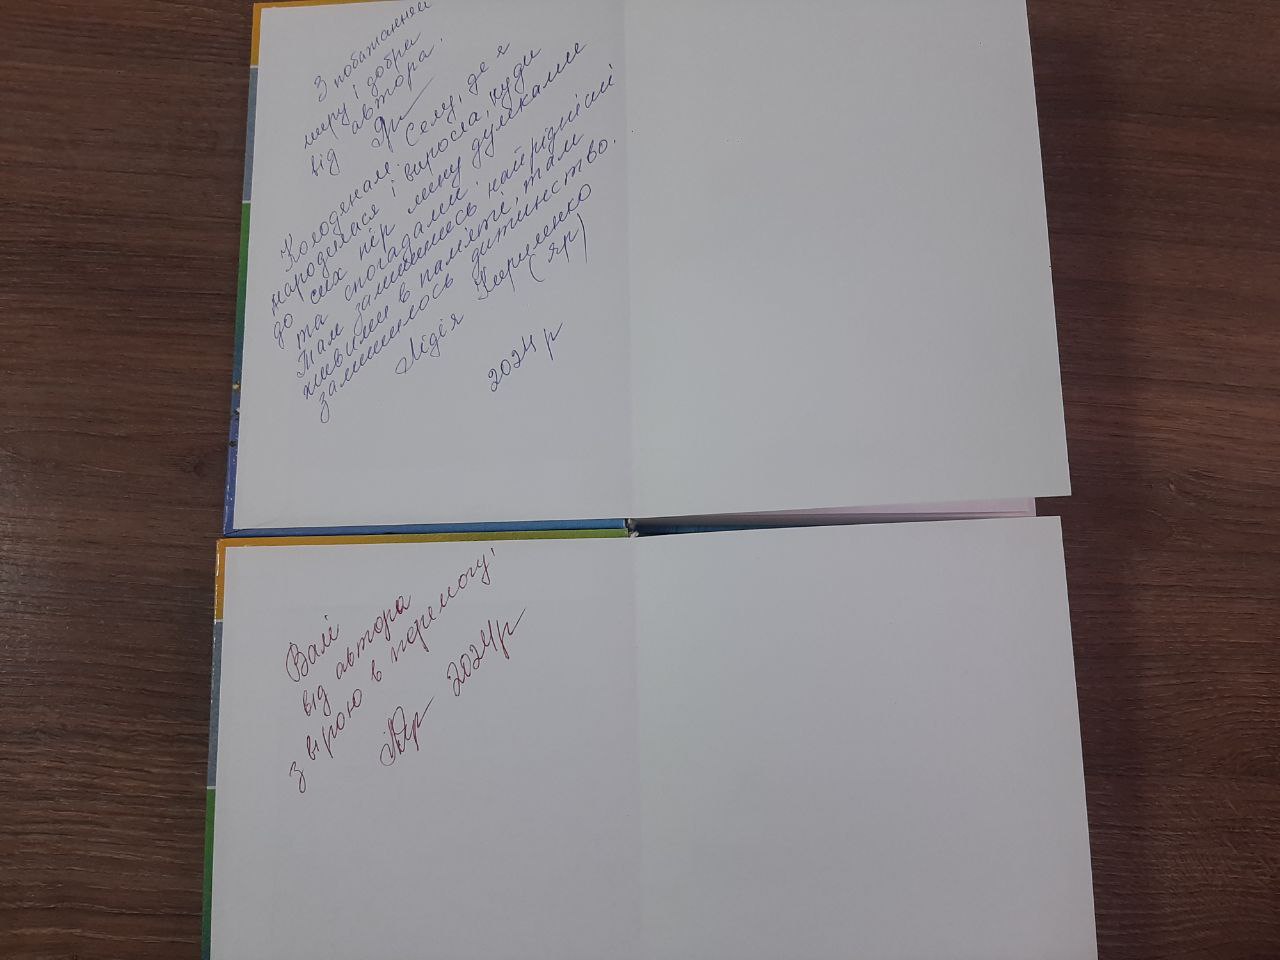 З побажанням
миру і добра
від автора.
Яр
Колодянам. Селу, де я
народилася і виросла, куди
до сих пір лину думками
та спогадами.
Там залишились найрідніші
хвилини в пам'яті, там
залишилось дитинство.
Лідія Кириленко
(Яр)
2024 р
Валі
від автора
з вірою в перемогу!
2024р